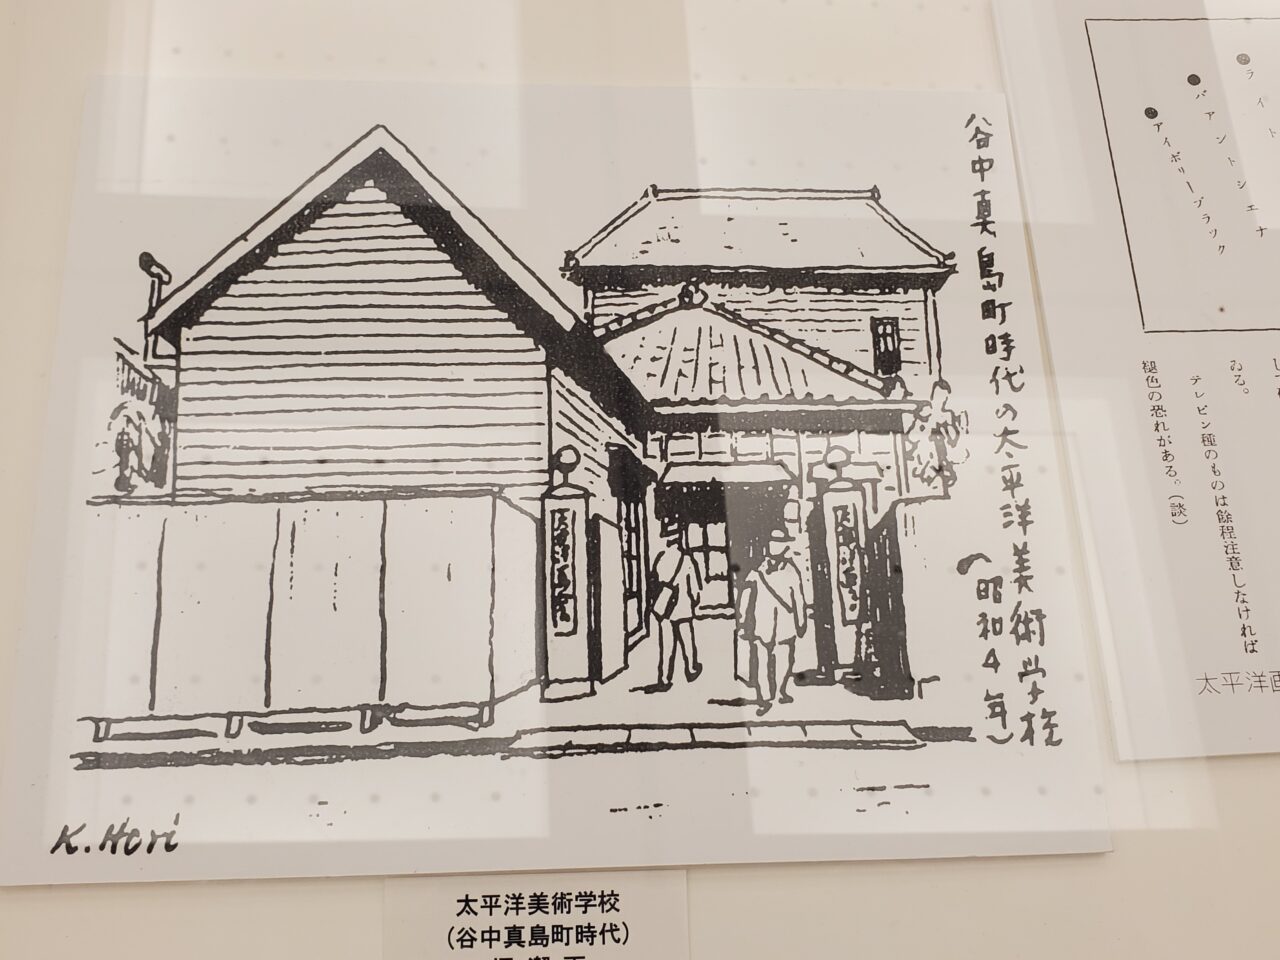 谷中真島町時代の太平洋美術学校
(昭和4年)
K. Hori
太平洋美術学校
(谷中真島町時代)
ライト
バアントシエナ
アイボリーブラック
ゐる。
テレピン種のものは餘程注意しなければ
褪色の恐れがある。(談)
太平洋画